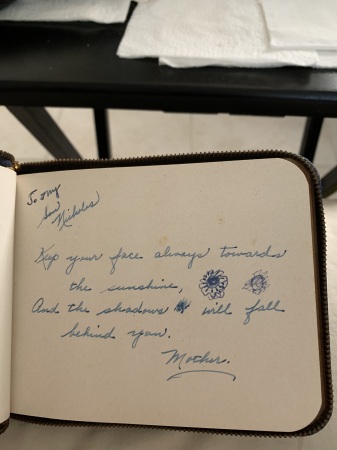 To my
Son
Nicholas
Keep your face always towards
the sunshine,
And the shadows will fall
behind you.
Mother.